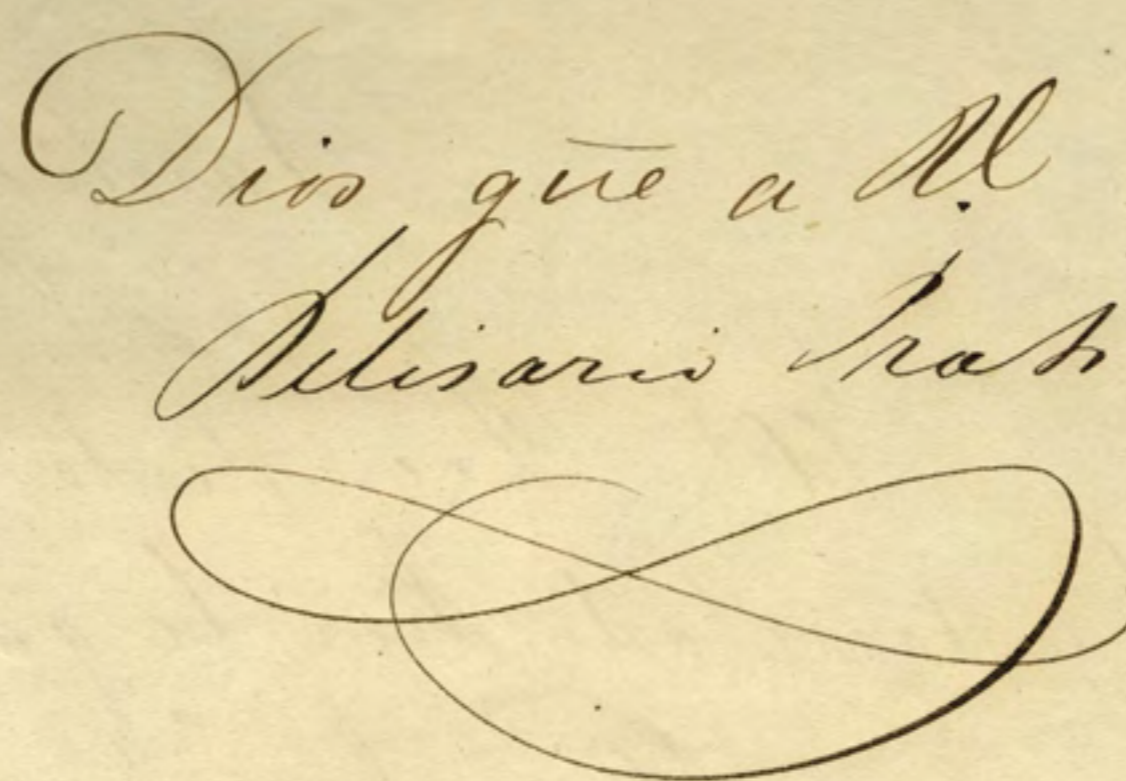 Dios güe a U.
Belisario Prats